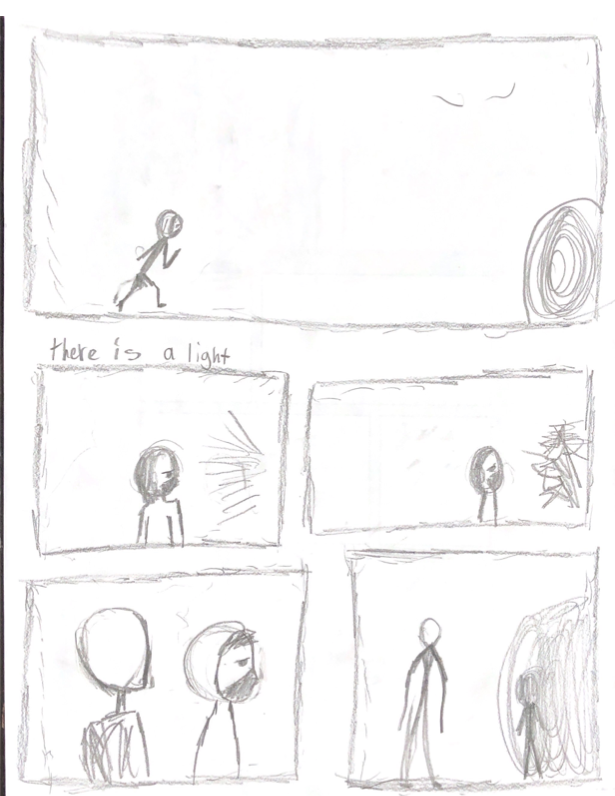 there is a light